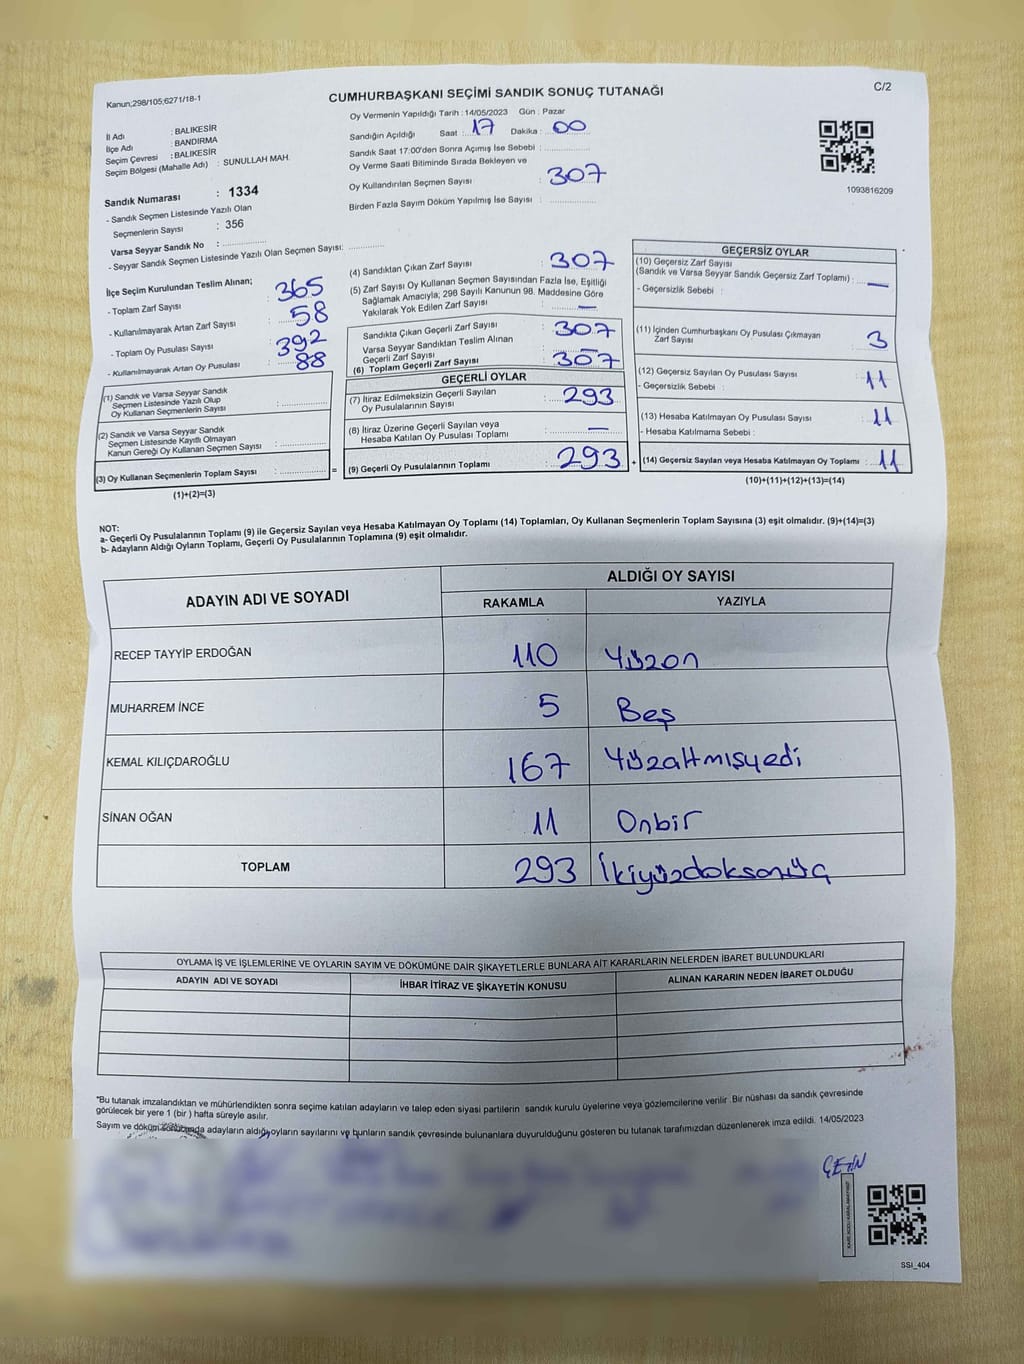 Kanun;298/105;6271/18-1
CUMHURBAŞKANI SEÇİMİ SANDIK SONUÇ TUTANAĞI
C/2
Oy Vermenin Yapıldığı Tarih :14/05/2023 Gün : Pazar
İl Adı : BALIKESİR
İlçe Adı : BANDIRMA
Seçim Çevresi : BALIKESİR
Seçim Bölgesi (Mahalle Adı) : SUNULLAH MAH.
Sandık Numarası : 1334
- Sandık Seçmen Listesinde Yazılı Olan
Seçmenlerin Sayısı : 356
Varsa Seyyar Sandık No :
- Seyyar Sandık Seçmen Listesinde Yazılı Olan Seçmen Sayısı:
Sandığın Açıldığı Saat : 17 Dakika : 00
Sandık Saat 17:00'den Sonra Açımış İse Sebebi :
Oy Verme Saati Bitiminde Sırada Bekleyen ve
Oy Kullandırılan Seçmen Sayısı : 307
Birden Fazla Sayım Döküm Yapılmış İse Sayısı :
1093816209
İlçe Seçim Kurulundan Teslim Alınan;
- Toplam Zarf Sayısı : 365
- Kullanılmayarak Artan Zarf Sayısı : 58
- Toplam Oy Pusulası Sayısı : 392
- Kullanılmayarak Artan Oy Pusulası : 88
(1) Sandık ve Varsa Seyyar Sandık
Seçmen Listesinde Yazılı Olup
Oy Kullanan Seçmenlerin Sayısı :
(2) Sandık ve Varsa Seyyar Sandık
Seçmen Listesinde Kayıtlı Olmayan
Kanun Gereği Oy Kullanan Seçmen Sayısı :
(3) Oy Kullanan Seçmenlerin Toplam Sayısı : =
(1)+(2)=(3)
(4) Sandıktan Çıkan Zarf Sayısı : 307
(5) Zarf Sayısı Oy Kullanan Seçmen Sayısından Fazla İse, Eşitliği
Sağlamak Amacıyla; 298 Sayılı Kanunun 98. Maddesine Göre
Yakılarak Yok Edilen Zarf Sayısı : —
Sandıkta Çıkan Geçerli Zarf Sayısı : 307
Varsa Seyyar Sandıktan Teslim Alınan
Geçerli Zarf Sayısı :
(6) Toplam Geçerli Zarf Sayısı : 307
GEÇERLİ OYLAR
(7) İtiraz Edilmeksizin Geçerli Sayılan
Oy Pusulalarının Sayısı : 293
(8) İtiraz Üzerine Geçerli Sayılan veya
Hesaba Katılan Oy Pusulası Toplamı : —
(9) Geçerli Oy Pusulalarının Toplamı : 293 +
GEÇERSİZ OYLAR
(10) Geçersiz Zarf Sayısı
(Sandık ve Varsa Seyyar Sandık Geçersiz Zarf Toplamı) : —
- Geçersizlik Sebebi :
(11) İçinden Cumhurbaşkanı Oy Pusulası Çıkmayan
Zarf Sayısı : 3
(12) Geçersiz Sayılan Oy Pusulası Sayısı : 11
- Geçersizlik Sebebi :
(13) Hesaba Katılmayan Oy Pusulası Sayısı : 11
- Hesaba Katılmama Sebebi :
(14) Geçersiz Sayılan veya Hesaba Katılmayan Oy Toplamı : 11
(10)+(11)+(12)+(13)=(14)
NOT:
a- Geçerli Oy Pusulalarının Toplamı (9) ile Geçersiz Sayılan veya Hesaba Katılmayan Oy Toplamı (14) Toplamları, Oy Kullanan Seçmenlerin Toplam Sayısına (3) eşit olmalıdır. (9)+(14)=(3)
b- Adayların Aldığı Oyların Toplamı, Geçerli Oy Pusulalarının Toplamına (9) eşit olmalıdır.
ADAYIN ADI VE SOYADI
ALDIĞI OY SAYISI
RAKAMLA YAZIYLA
RECEP TAYYİP ERDOĞAN 110 Yüzon
MUHARREM İNCE 5 Beş
KEMAL KILIÇDAROĞLU 167 Yüzaltmışyedi
SİNAN OĞAN 11 Onbir
TOPLAM 293 İkiyüzdoksanüç
OYLAMA İŞ VE İŞLEMLERİNE VE OYLARIN SAYIM VE DÖKÜMÜNE DAİR ŞİKAYETLERLE BUNLARA AİT KARARLARIN NELERDEN İBARET BULUNDUKLARI
ADAYIN ADI VE SOYADI İHBAR İTİRAZ VE ŞİKAYETİN KONUSU ALINAN KARARIN NEDEN İBARET OLDUĞU
*Bu tutanak imzalandıktan ve mühürlendikten sonra seçime katılan adayların ve talep eden siyasi partilerin sandık kurulu üyelerine veya gözlemcilerine verilir .Bir nüshası da sandık çevresinde
görülecek bir yere 1 (bir ) hafta süreyle asılır.
Sayım ve döküm sonucunda adayların aldığı oyların sayılarını ve bunların sandık çevresinde bulunanlara duyurulduğunu gösteren bu tutanak tarafımızdan düzenlenerek imza edildi. 14/05/2023
ÇETİN
SSI_404